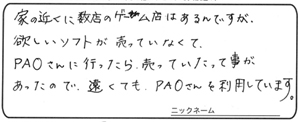 家の近くに数店のゲーム店はあるんですが、
欲しいソフトが売っていなくて、
PAOさんに行ったら、売っていたって事が
あったので、遠くても、PAOさんを利用しています。
ニックネーム